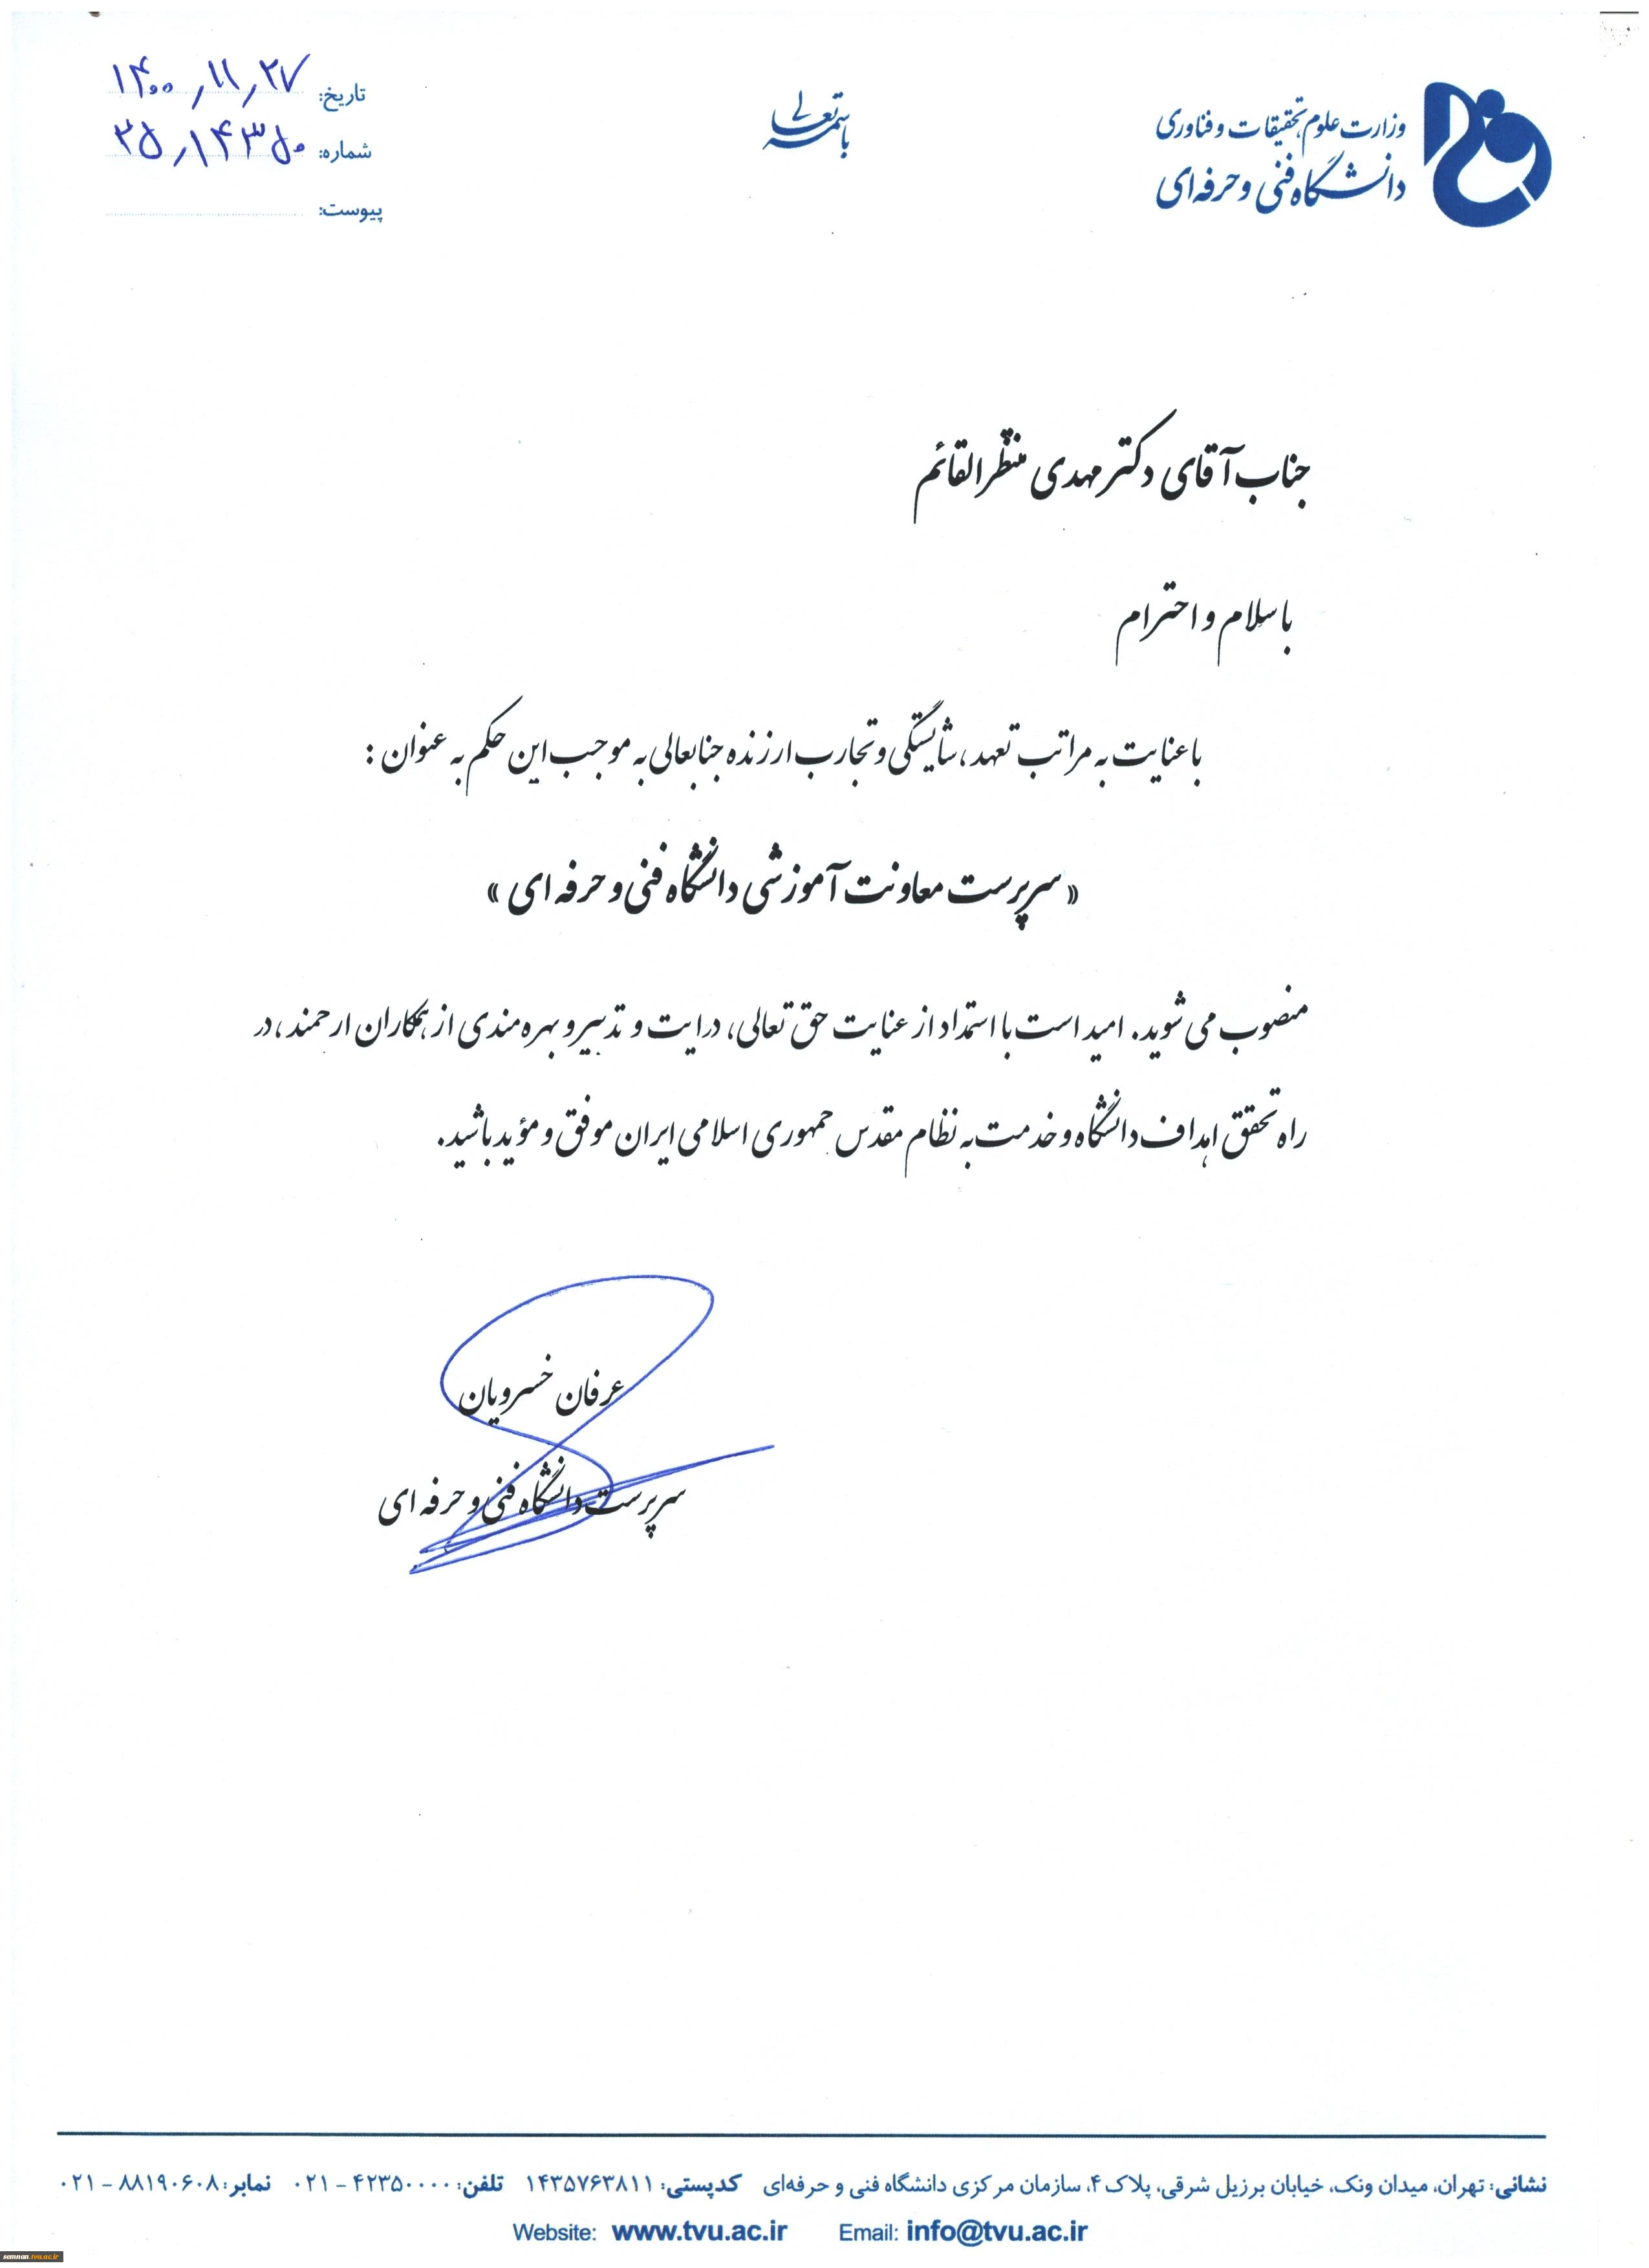 وزارت علوم، تحقیقات و فناوری
دانشگاه فنی و حرفه‌ای
باسمه تعالی
تاریخ: ۱۴۰۰/۱۱/۲۷
شماره: ۲۵/۱۴۳۵۰
پیوست:
جناب آقای دکتر مهدی منتظرالقائم
با سلام و احترام
با عنایت به مراتب تعهد، شایستگی و تجارب ارزنده جنابعالی به موجب این حکم به عنوان :
« سرپرست معاونت آموزشی دانشگاه فنی و حرفه ای »
منصوب می شوید. امید است با استمداد از عنایت حق تعالی، درایت و تدبیر و بهره مندی از همکاران ارجمند، در
راه تحقق اهداف دانشگاه و خدمت به نظام مقدس جمهوری اسلامی ایران موفق و مؤید باشید.
عرفان خسرویان
سرپرست دانشگاه فنی و حرفه ای
نشانی: تهران، میدان ونک، خیابان برزیل شرقی، پلاک ۴، سازمان مرکزی دانشگاه فنی و حرفه‌ای کدپستی: ۱۴۳۵۷۶۳۸۱۱ تلفن: ۴۲۳۵۰۰۰۰ - ۰۲۱ نمابر: ۸۸۱۹۰۶۰۸ - ۰۲۱
Website: www.tvu.ac.ir Email: info@tvu.ac.ir
semnan.tvu.ac.ir